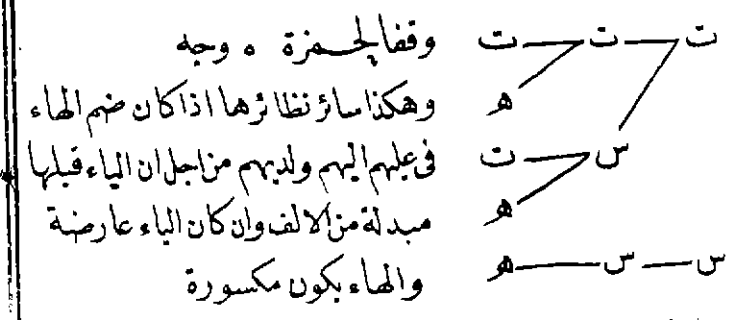 ت ت ت وقفا لحمزة ه وجه
ه وهكذا سائر نظائرها اذا كان ضم الهاء
س ت فى عليهم اليهم ولديهم من اجل ان الياء قبلها
ه مبدلة من الالف وان كان الياء عارضة
س س ه والهاء يكون مكسورة